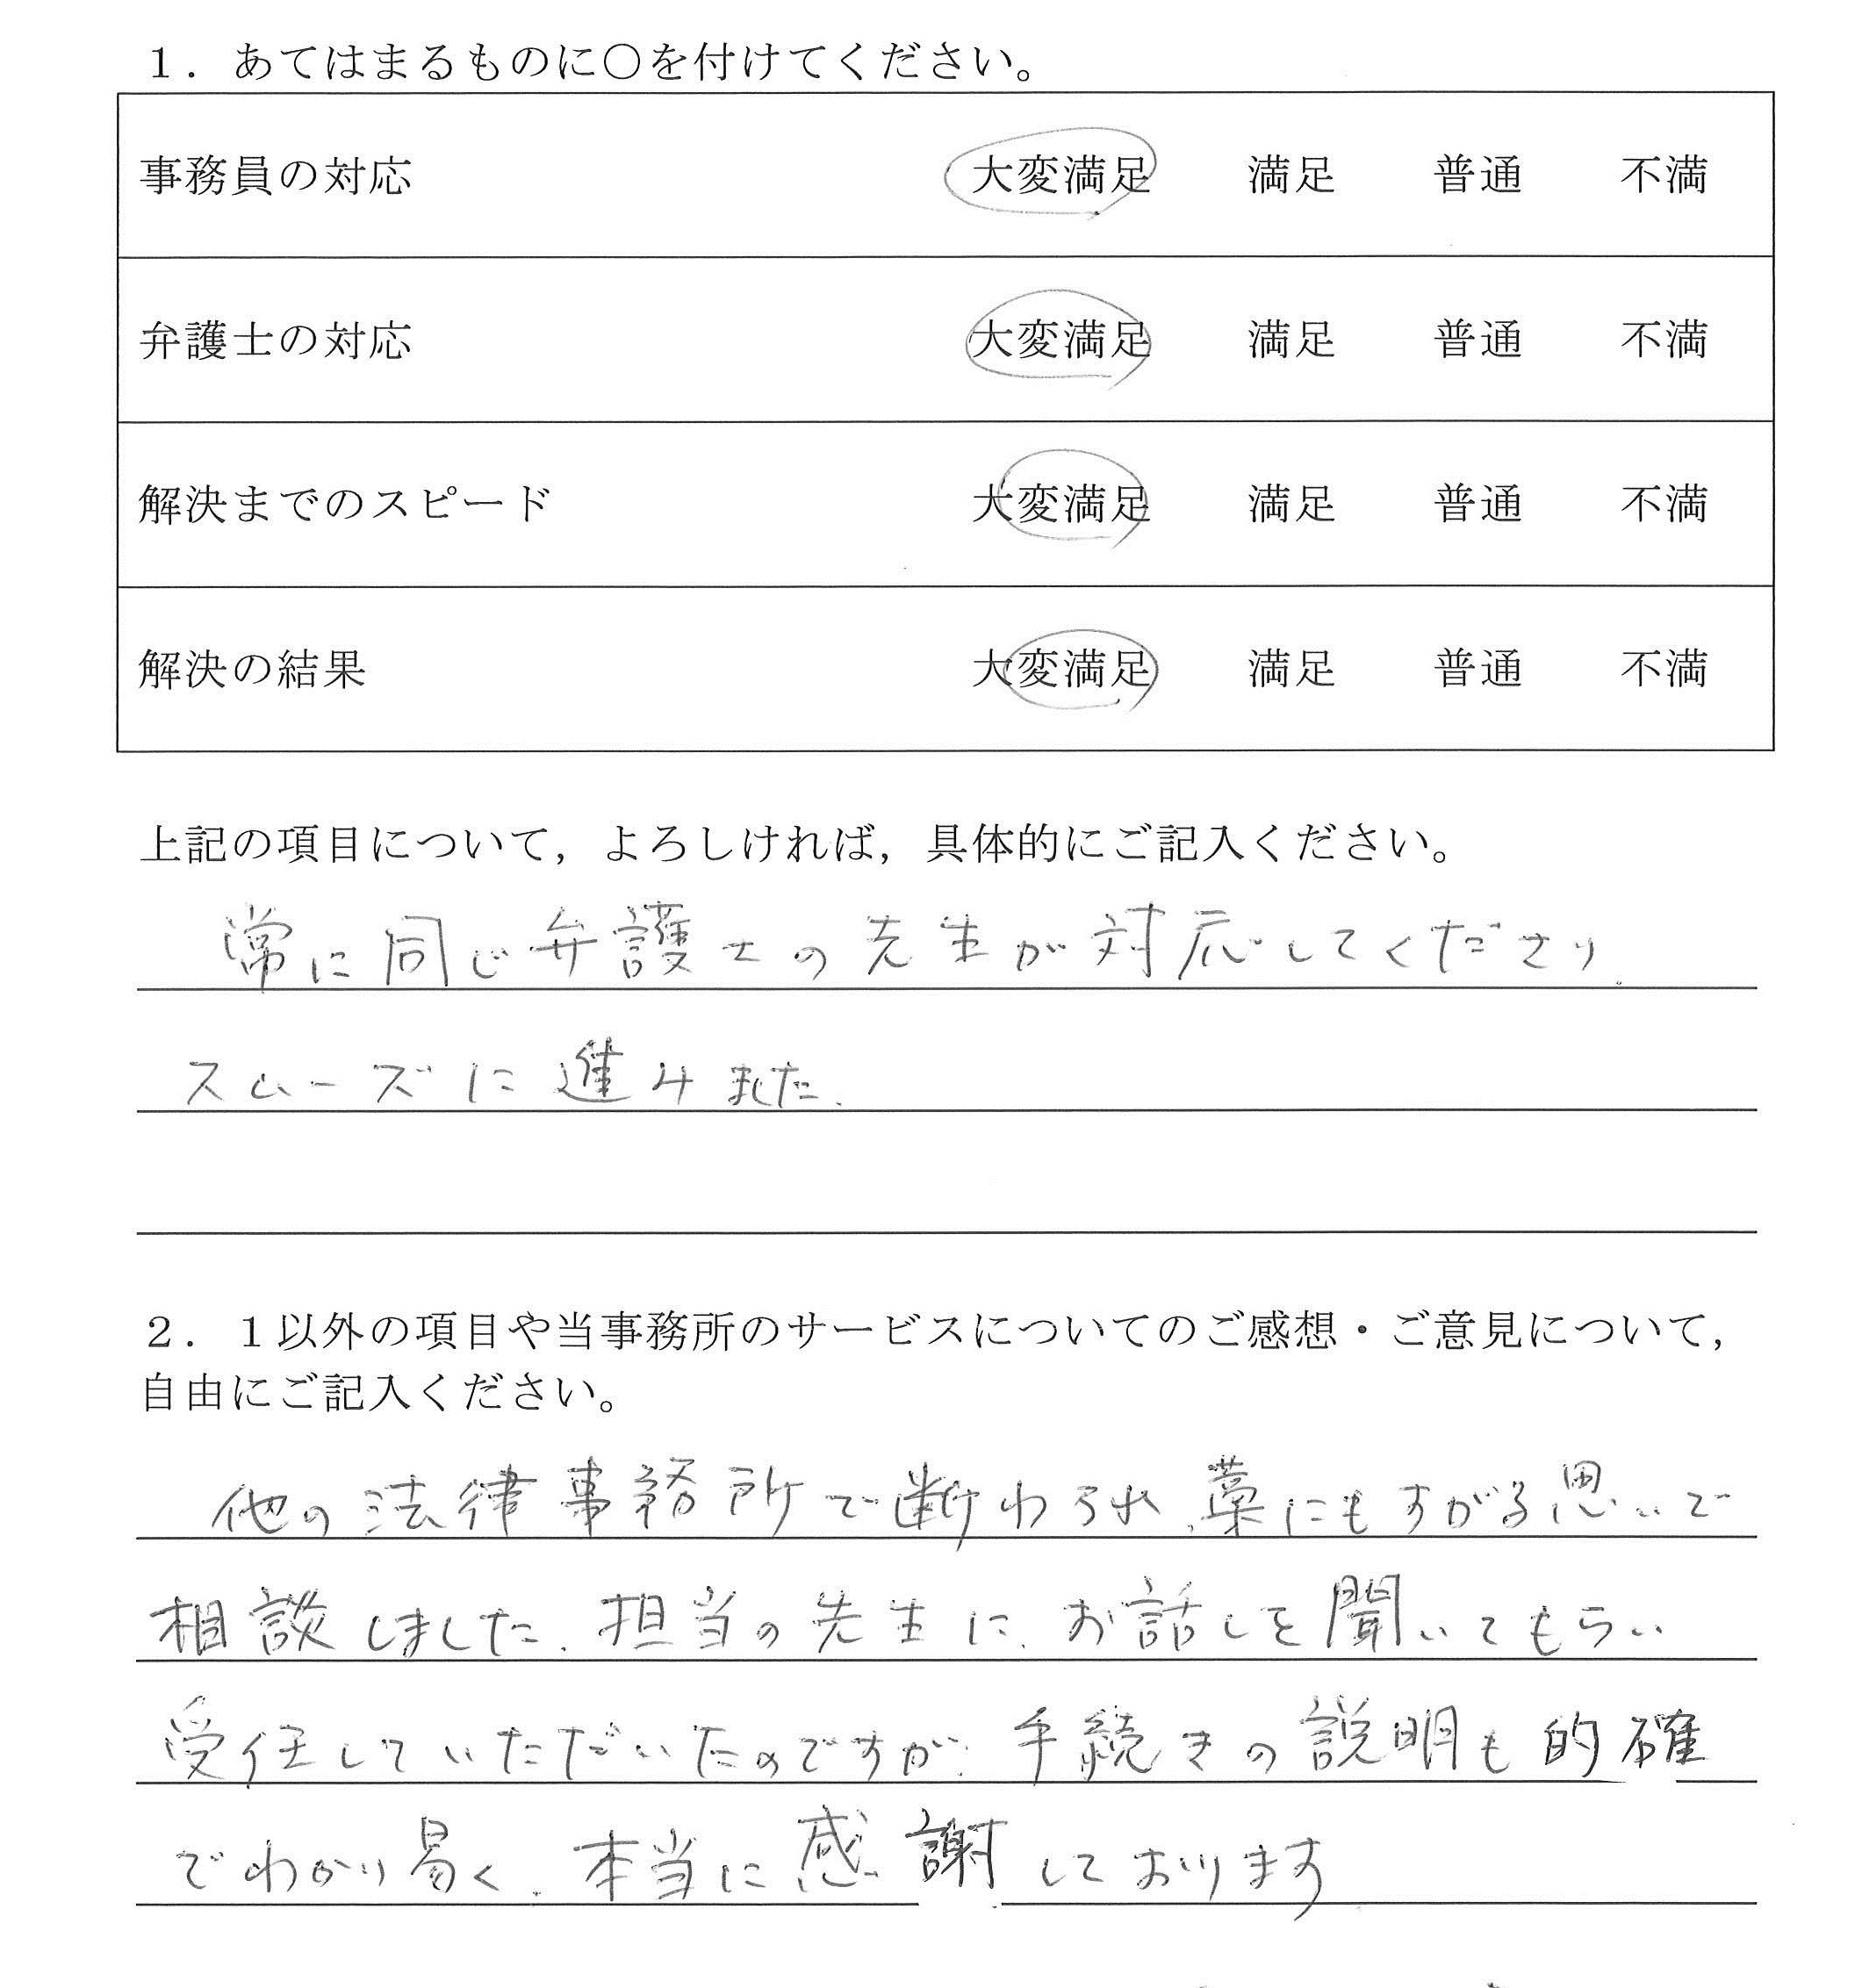 １．あてはまるものに○を付けてください。
事務員の対応 大変満足 満足 普通 不満
弁護士の対応 大変満足 満足 普通 不満
解決までのスピード 大変満足 満足 普通 不満
解決の結果 大変満足 満足 普通 不満
上記の項目について，よろしければ，具体的にご記入ください。
常に同じ弁護士の先生が対応してくださり、
スムーズに進みました。
２．１以外の項目や当事務所のサービスについてのご感想・ご意見について，
自由にご記入ください。
他の法律事務所で断わられ、藁にもすがる思いで
相談しました。担当の先生に、お話しを聞いてもらい
受任していただいたのですが、手続きの説明も的確
でわかり易く、本当に感謝しております